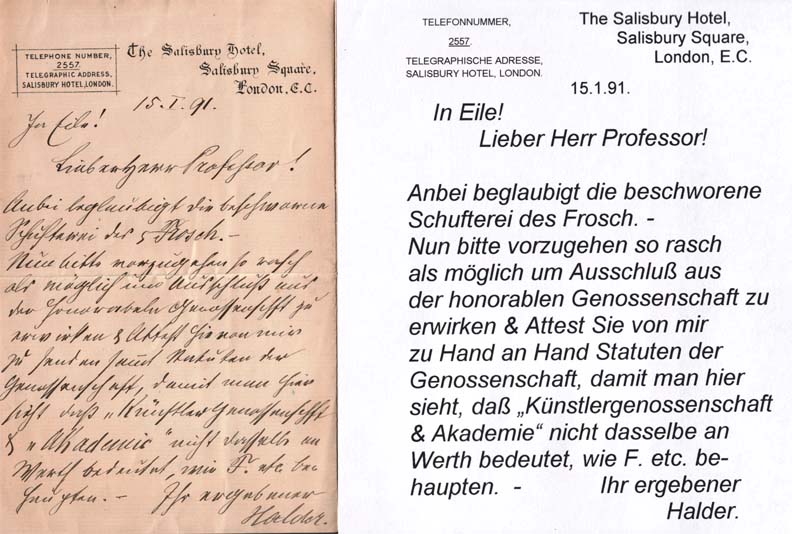 TELEPHONE NUMBER,
2557.
TELEGRAPHIC ADDRESS,
SALISBURY HOTEL, LONDON.
The Salisbury Hotel,
Salisbury Square,
London, E.C.
15.I.91.
In Eile!
Lieber Herr Professor!
Anbei beglaubigt die beschworne
Schufterei des Frosch. –
Nun bitte vorzugehen so rasch
als möglich um Ausschluß aus
der honorabeln Genossenschft zu
erwirken & Attest hievon mir
zu senden sammt Statuten der
Genossenschaft, damit man hier
sieht daß „Künstler Genossenschft
& „Akademie“ nicht dasselbe an
Werth bedeutet, wie F. etc. be-
haupten. – Ihr ergebener
Halder.
TELEFONNUMMER,
2557.
TELEGRAPHISCHE ADRESSE,
SALISBURY HOTEL, LONDON.
The Salisbury Hotel,
Salisbury Square,
London, E.C.
15.1.91.
In Eile!
Lieber Herr Professor!
Anbei beglaubigt die beschworene
Schufterei des Frosch. -
Nun bitte vorzugehen so rasch
als möglich um Ausschluß aus
der honorablen Genossenschaft zu
erwirken & Attest Sie von mir
zu Hand an Hand Statuten der
Genossenschaft, damit man hier
sieht, daß „Künstlergenossenschaft
& Akademie“ nicht dasselbe an
Werth bedeutet, wie F. etc. be-
haupten. - Ihr ergebener
Halder.